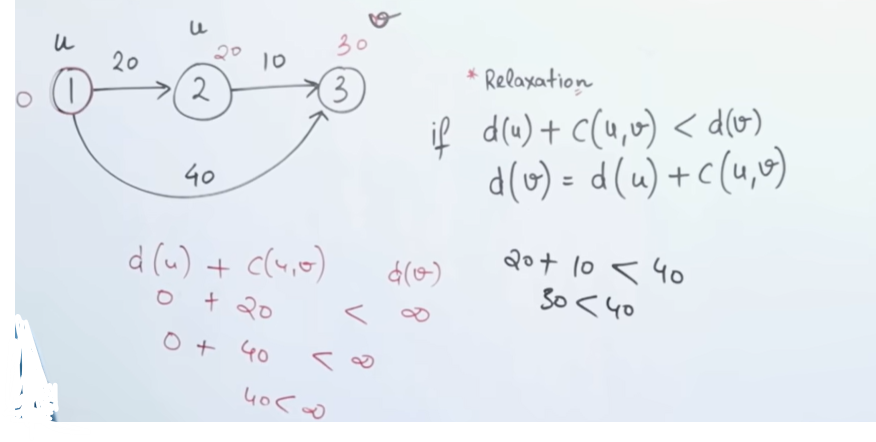 u
u
v
20
20
10
30
0
1
2
3
40
* Relaxation
if d(u) + c(u,v) < d(v)
d(v) = d(u) + c(u,v)
d(u) + c(u,v) d(v)
0 + 20 < ∞
0 + 40 < ∞
40 < ∞
20 + 10 < 40
30 < 40